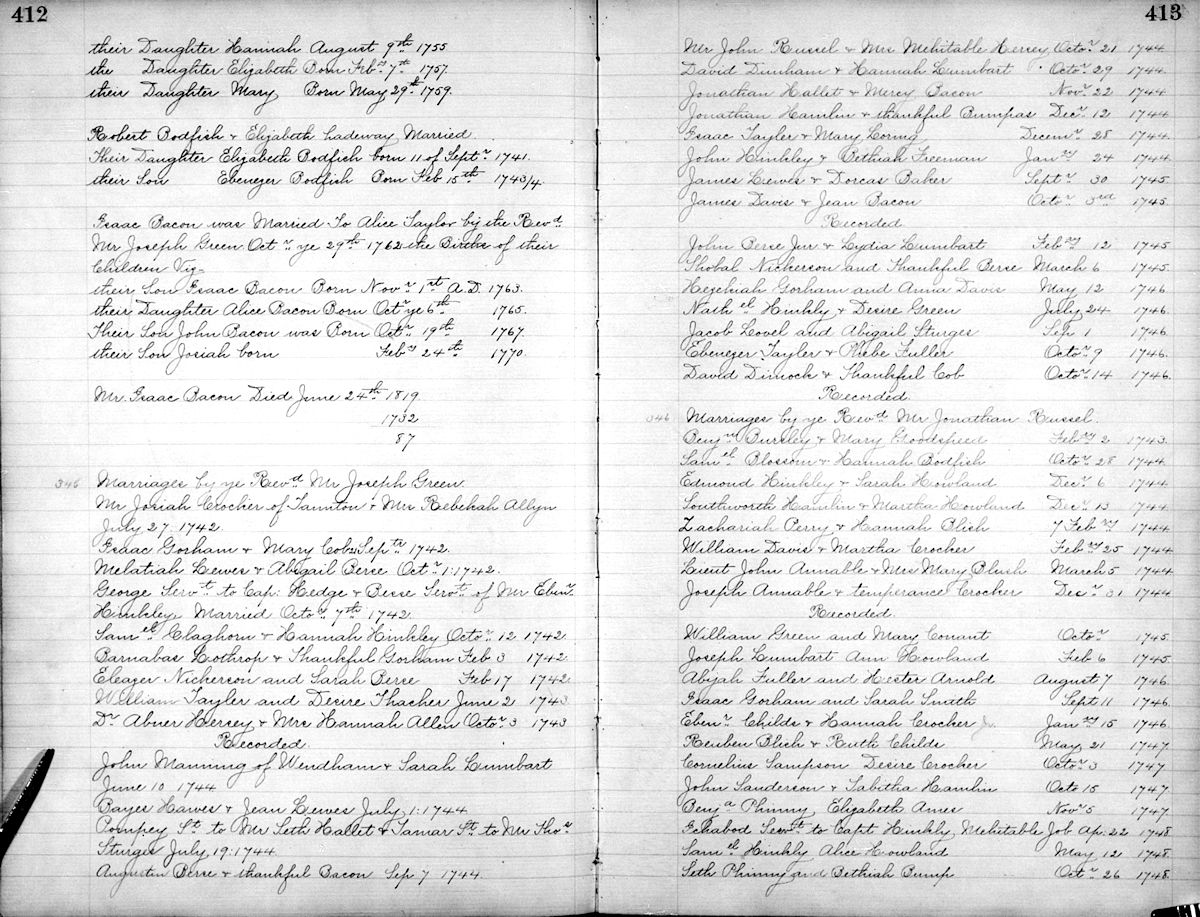 412
their Daughter Hannah August 9th 1755
the Daughter Elizabeth Born Febry 7th 1757.
their Daughter Mary Born May 29th 1759.
Robert Bodfish & Elizabeth Ladeway Married.
Their Daughter Elizabeth Bodfish born 11 of Septr 1741.
their Son Ebenezer Bodfish Born Feb 15th 1743/4.
Isaac Bacon was Married To Alice Taylor by the Revd
Mr Joseph Green Octr ye 29th 1762 the Births of their
Children Viz-
their Son Isaac Bacon Born Novr 1st A.D. 1763.
their Daughter Alice Bacon Born Octr ye 6th 1765.
Their Son John Bacon was Born Octr 19th 1767.
their Son Josiah born Febry 24th 1770.
Mr. Isaac Bacon Died June 24th 1819.
1732
87
346 Marriages by ye Revd Mr Joseph Green
Mr Josiah Crocher of Taunton & Mrs Rebekah Allyn
July 27: 1742.
Isaac Gorham & Mary Cobb Septr 1742.
Melatiah Lewes & Abigail Berse Octr 1:1742.
George Servt to Cap: Hedge & Besse Servt of Mr Ebenr
Hinkley Married Octor 7th 1742.
Samel Claghorn & Hannah Hinkley Octor 12 1742.
Barnabas Lothrop & Thankful Gorham Feb 3 1742
Eleazer Nickerson and Sarah Berse Feb 17 1742
William Tayler and Desire Thacher June 2 1743
Dr Abner Hersey & Mrs Hannah Allen Octor 3 1743
Recorded.
John Manning of Wendham & Sarah Lumbart
June 10 1744
Bayes Hawes & Jean Lewes July 1:1744
Pompey St to Mr Seth Hallet & Tamar St to Mr Thor
Sturges July 19:1744.
Augustin Berse & thankful Bacon Sep 7 1744.
413
Mr John Russel & Mrs Mehitable Hersey Octor 21 1744
David Dunham & Hannah Lumbart Octor 29 1744.
Jonathan Hallet & Mercy Bacon Novr 22 1744
Jonathan Hamlin & thankful Bumpas Decr 12 1744
Isaac Tayler & Mary Loring Decemr 28 1744.
John Hinkley & Bethiah Freeman Janry 24 1744.
James Lewes & Dorcas Baker Septr 30 1745.
James Davis & Jean Bacon Octor 3rd 1745.
Recorded.
John Berse Jur & Lydia Lumbart Febry 12 1745
Shobal Nickerson and Thankful Berse March 6 1745.
Hezekiah Gorham and Anna Davis May 12 1746
Nathel Hinkly & Desire Green July 24 1746.
Jacob Lovel and Abigail Sturges Sep 1746.
Ebenezer Tayler & Phebe Fuller Octor 9 1746.
David Dimock & Thankful Cob Octor 14 1746.
Recorded.
346 Marriages by ye Revd Mr Jonathan Russel.
Benjn Bursley & Mary Goodspeed Febry 2 1743.
Samel Blossom & Hannah Bodfish Octor 28 1744.
Edmond Hinkley & Sarah Howland Decr 6 1744
Southworth Hamlin & Martha Howland Decr 13 1744
Zachariah Perry & Hannah Blish 7 Febry 1744
William Davis & Martha Crocker Febry 25 1744
Lieut John Annable & Mrs Mary Blush March 5 1744
Joseph Annable & temperance Crocker Decr 31 1744
Recorded.
William Green and Mary Conant Octor 1745
Joseph Lumbart Ann Howland Feb 6 1745.
Abijah Fuller and Hester Arnold August 7 1746
Isaac Gorham and Sarah Smith Sept 11 1746
Ebenr Childs & Hannah Crocker Janry 15 1746
Reuben Blish & Ruth Childs May 21 1747.
Cornelius Sampson Desire Crocker Octor 3 1747
John Sanderson & Tabitha Hamlin Octo 15 1747.
Benja Phinny Elizabeth Ames Novr 5 1747.
Ichabod Servt to Capt Hinkly Mehitable Job Ap: 22 1748
Samel Hinkly Alice Howland May 12 1748.
Seth Phinny and Bethiah Bump Octr 26 1748.